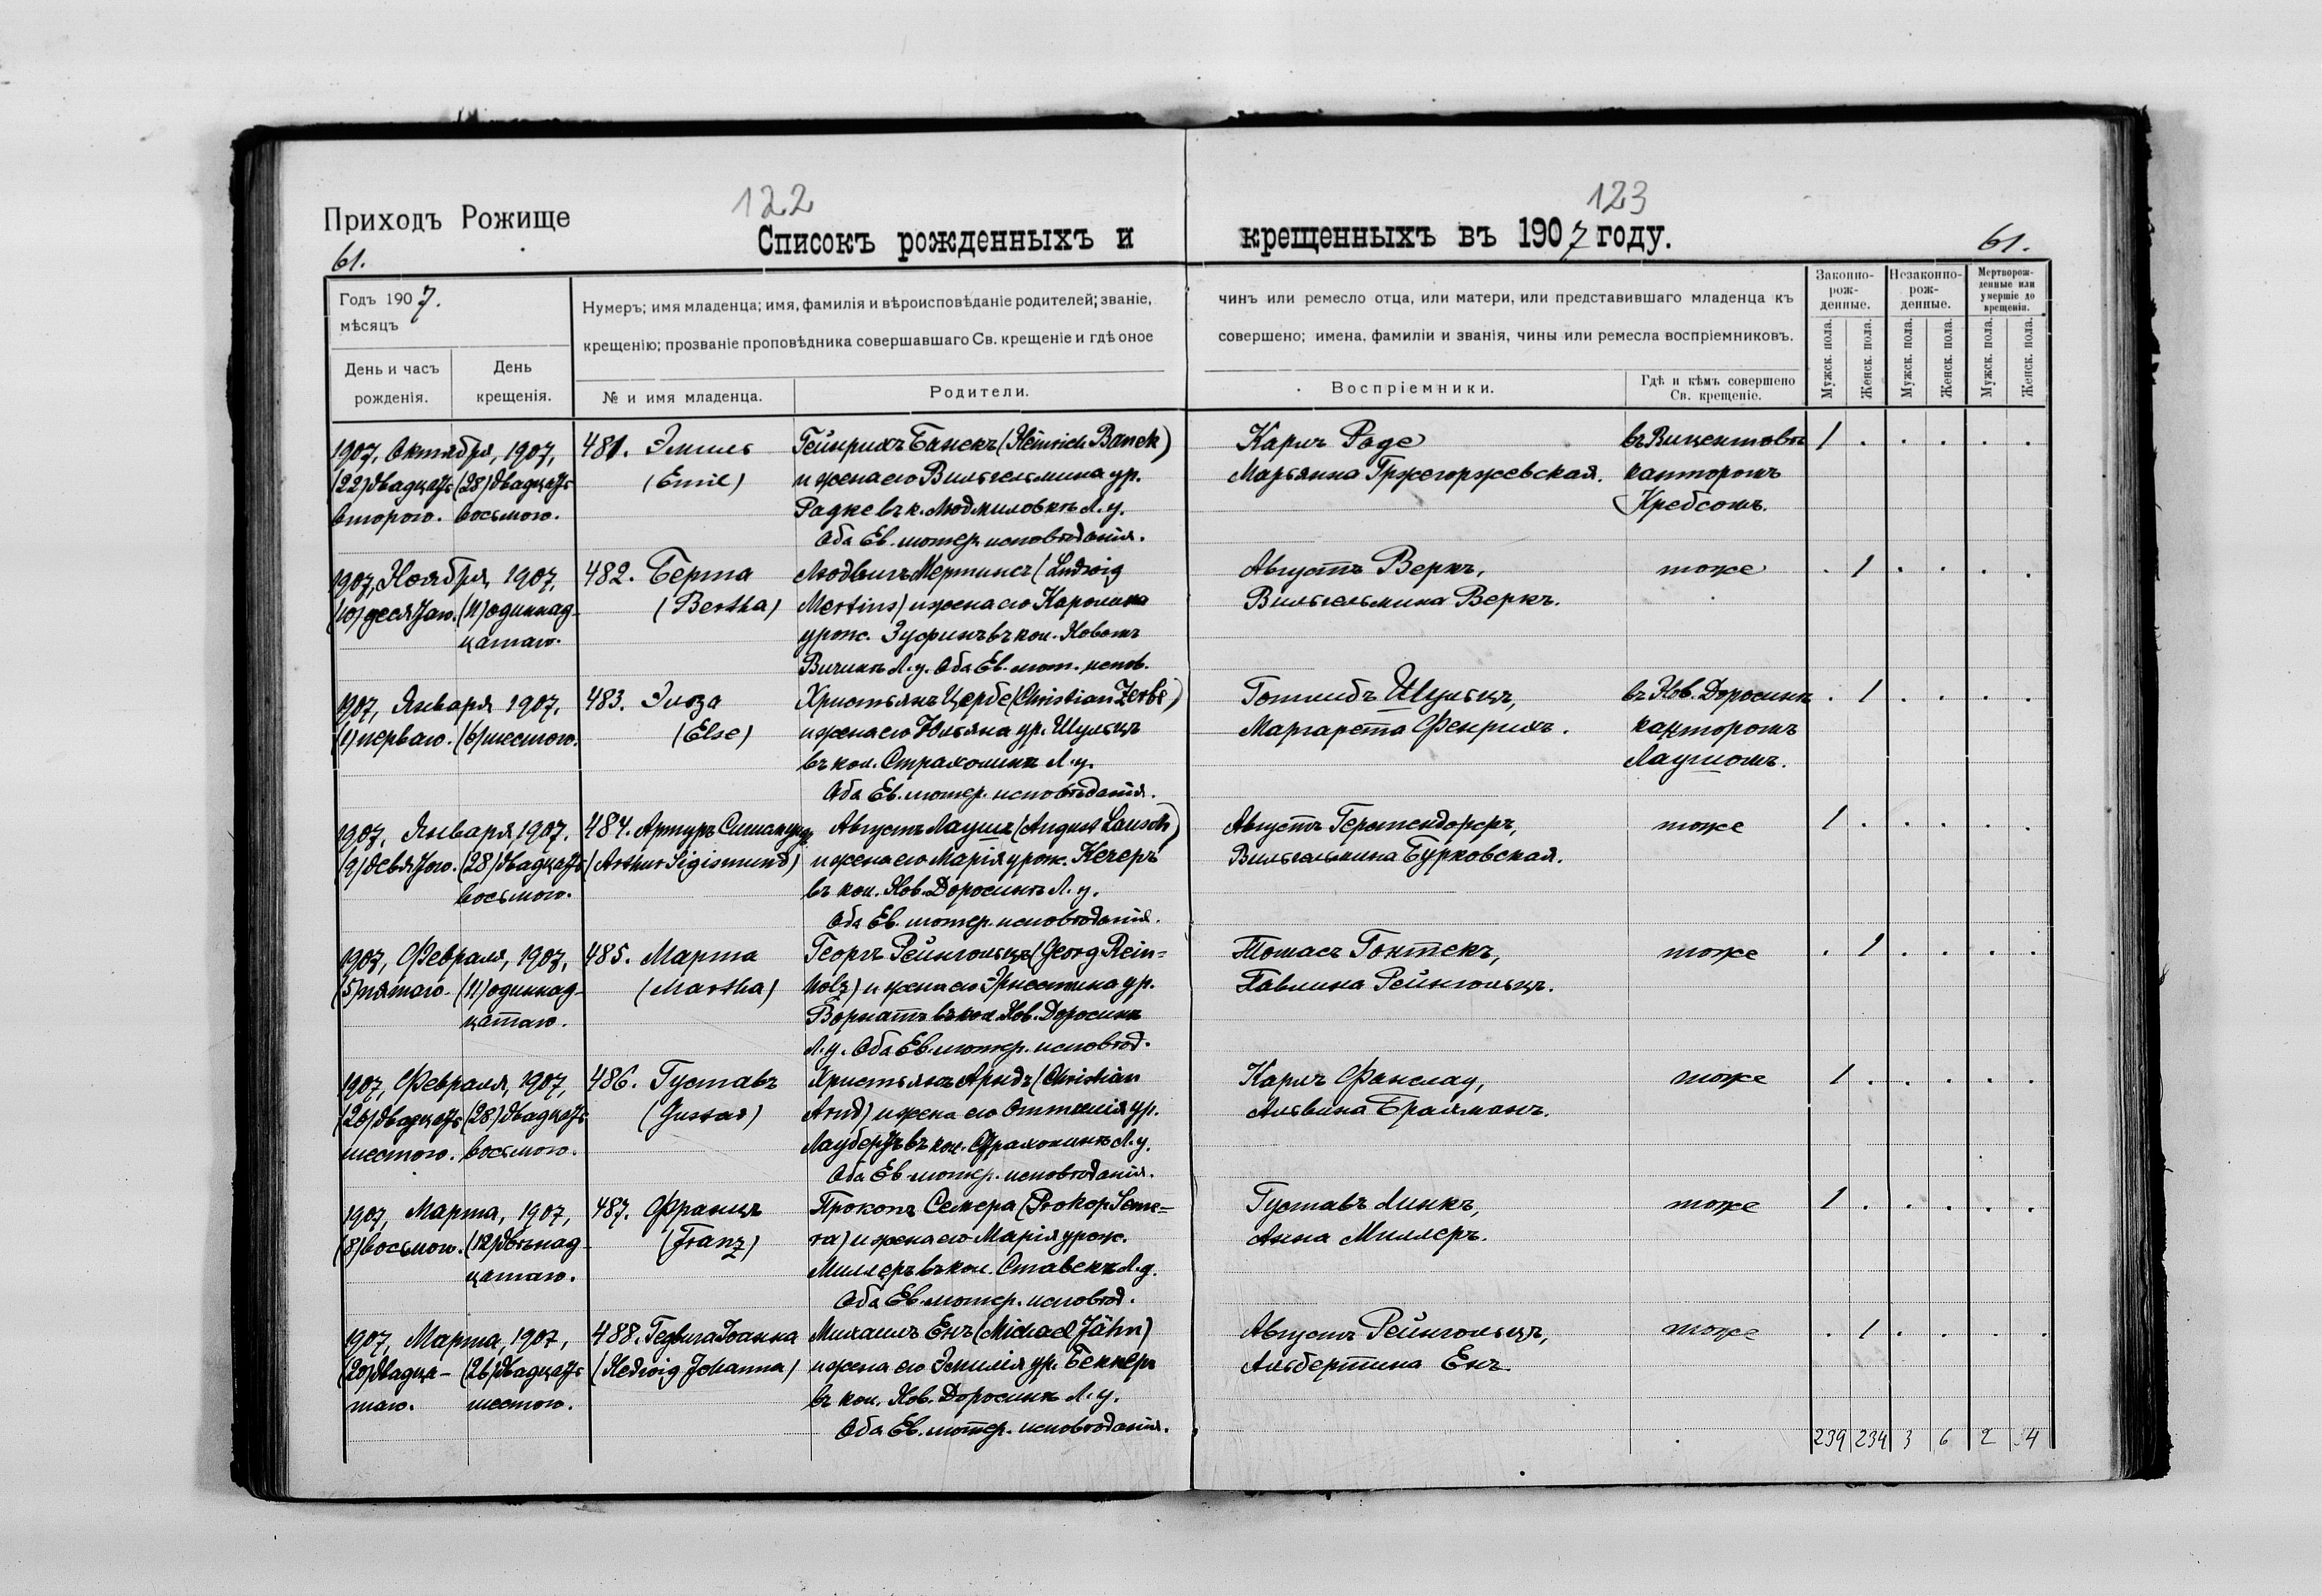 122
123
Приходъ Рожище
Списокъ рожденныхъ и крещенныхъ въ 1907 году.
61.
61.
Годъ 1907.
мѣсяцъ
День и часъ рожденія.
День крещенія.
Нумеръ; имя младенца; имя, фамилія и вѣроисповѣданіе родителей; званіе,
крещенію; прозваніе проповѣдника совершавшаго Св. крещеніе и гдѣ оное
№ и имя младенца.
Родители.
чинъ или ремесло отца, или матери, или представившаго младенца къ
совершено; имена, фамиліи и званія, чины или ремесла воспріемниковъ.
Воспріемники.
Гдѣ и кѣмъ совершено
Св. крещеніе.
Законно-
рож-
денные.
Незаконно-
рож-
денные.
Мертворож-
денные или
умершіе до
крещенія.
Мужск. пола.
Женск. пола.
Мужск. пола.
Женск. пола.
Мужск. пола.
Женск. пола.
1907, Октября, 1907,
(22) двадцать (28) двадцать
второго. восьмого.
481. Эмиль
(Emil)
Гейнрихъ Банекъ (Heinrich Banek)
и жена его Вильгельмина ур.
Радке въ к. Людмиловкѣ Л. у.
Оба Ев. лютер. исповѣданія.
Карлъ Раде
Марьянна Гржегоржевская.
въ Вицентовкѣ
канторомъ
Кребсомъ.
1 . . . . .
1907, Ноября, 1907,
(10) десятого. (11) одиннад-
цатаго.
482. Берта
(Bertha)
Людвигъ Мертинсъ (Ludwig
Mertins) и жена его Каролина
урож. Зуфинъ въ кол. Новомъ
Вичинѣ Л. у. Оба Ев. лют. испов.
Августъ Веркъ,
Вильгельмина Веркъ.
тоже
. 1 . . . .
1907, Января 1907,
(1) перваго. (6) шестого.
483. Элза
(Else)
Христьянъ Цербе (Christian Zerbe)
и жена его Юльяна ур. Шульцъ
въ кол. Страхолинѣ Л. у.
Оба Ев. лютер. исповѣданія.
Готлибъ Шульцъ,
Маргарета Фенрихъ.
въ Нов. Доросинѣ
канторомъ
Лаушомъ.
. 1 . . . .
1907, Января, 1907.
(9) девятого. (28) двадцать
восьмого.
484. Артуръ Сигизмундъ
(Arthur Sigismund)
Августъ Лаушъ (August Lausch)
и жена его Марія урож. Кечеръ
въ кол. Нов. Доросинѣ Л. у.
Оба Ев. лютер. исповѣданія.
Августъ Герстендорфъ,
Вильгельмина Бурковская.
тоже
1 . . . . .
1907, Февраля, 1907,
(5) пятаго. (11) одиннад-
цатаго.
485. Марта
(Martha)
Георгъ Рейнгольцъ (Georg Rein=
holz) и жена его Эрнестина ур.
Ворнатъ въ кол. Нов. Доросинѣ
Л. у. Оба Ев. лютер. исповѣд.
Томасъ Гоктекъ,
Павлина Рейнгольцъ.
тоже
. 1 . . . .
1907, Февраля, 1907,
(26) двадцать (28) двадцать
шестого. восьмого.
486. Густавъ
(Gustav)
Христьянъ Арндъ (Christian
Arnd) и жена его Оттилія ур.
Лаубертъ въ кол. Страхолинѣ Л. у.
Оба Ев. лютер. исповѣданія.
Карлъ Фанслау,
Альвина Брахманъ.
тоже
1 . . . . .
1907, Марта, 1907,
(8) восьмого. (12) двѣнад-
цатаго.
487. Францъ
(Franz)
Прокопъ Семера (Prokop Seme=
ra) и жена его Марія урож.
Миллеръ въ кол. Ставекъ Л. у.
Оба Ев. лютер. исповѣд.
Густавъ Линкъ,
Анна Миллеръ.
тоже
1 . . . . .
1907, Марта, 1907,
(20) двадца- (26) двадцать
таго. шестого.
488. Гедвига Іоанна
(Hedwig Johanna)
Михаилъ Енъ (Michael Jähn)
и жена его Эмилія ур. Беккеръ
въ кол. Нов. Доросинѣ Л. у.
Оба Ев. лютер. исповѣданія.
Августъ Рейнгольцъ,
Альбертина Енъ.
тоже
. 1 . . . .
239 234 3 6 2 4